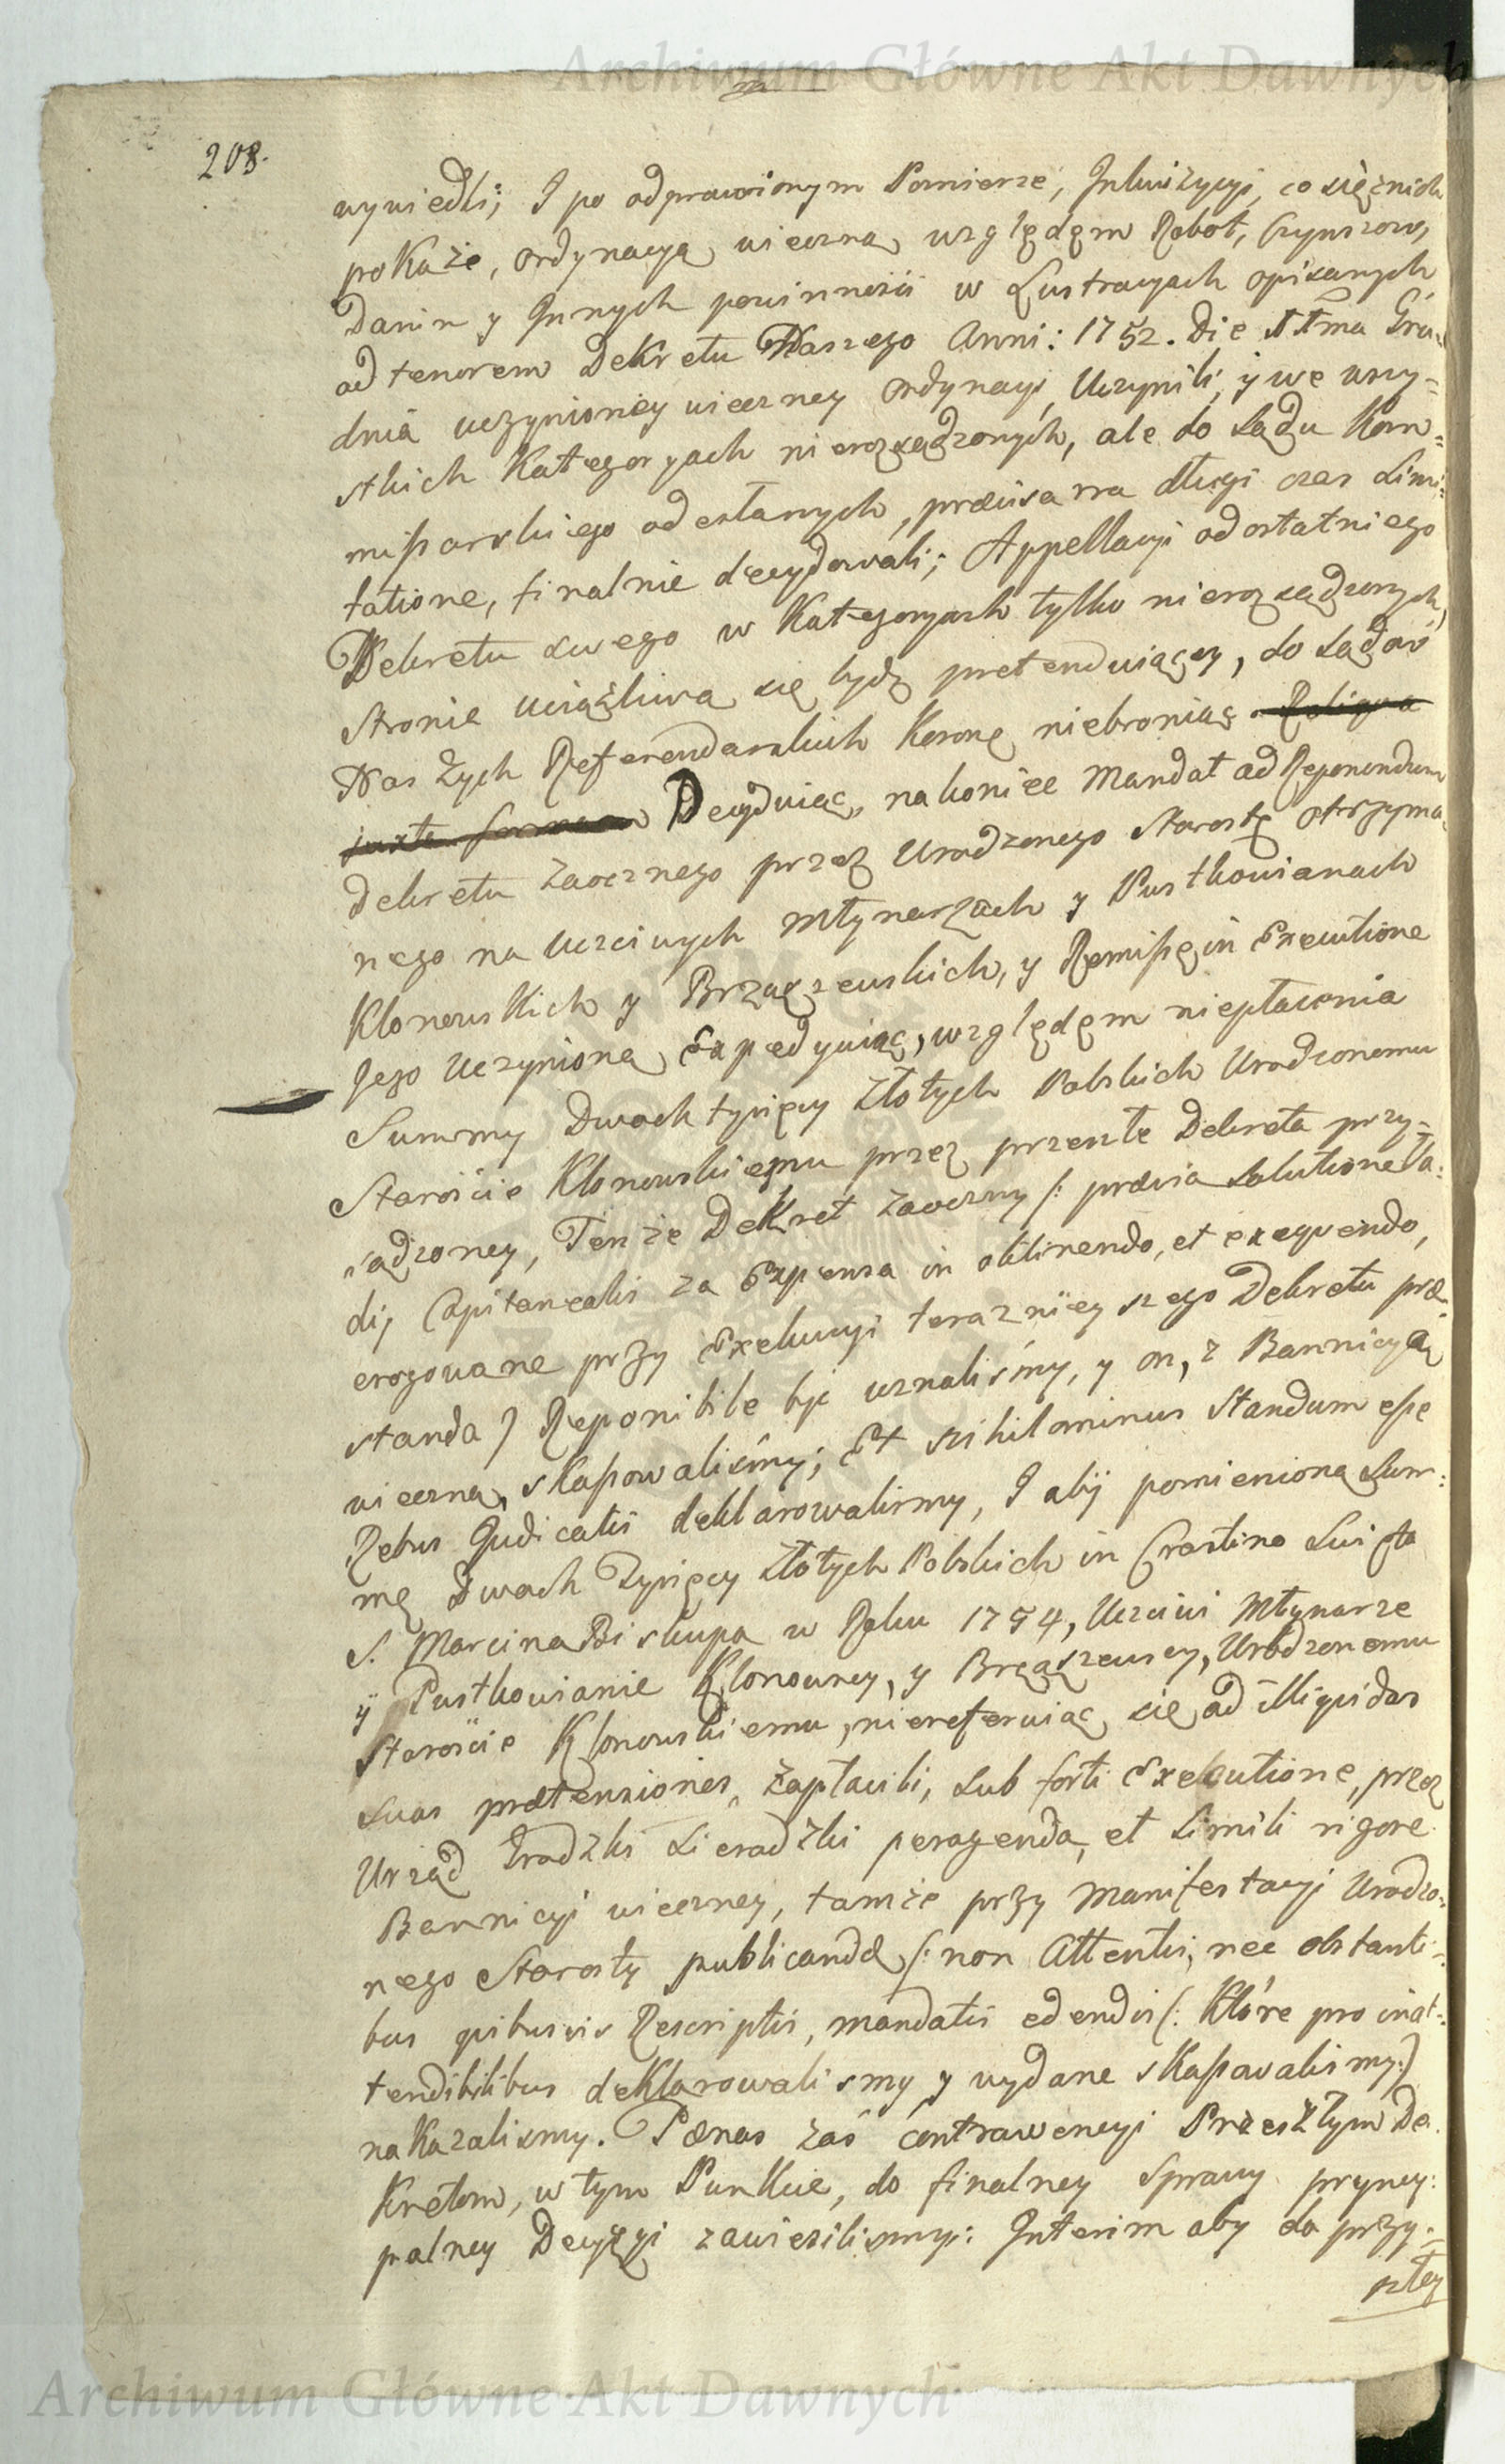 Archiwum Główne Akt Dawnych
208.
wywiedli; I po odprawionym Pomierze, Inkwizycyi, co się z nich
pokaże, ordynacyą wieczną względem Robot, Czynszow,
Danin y Innych powinności w Lustracyach opisanych
ad tenorem Dekretu Naszego Anni: 1752. die 11ma Gru=
dnia uczynioney wieczney ordynacyi, Uczynili, y we wszy=
stkich Kategoryach nierozsądzonych, ale do Sądu Kom=
missarskiego odesłanych, praevisa na długi czas Limi=
tatione, finalnie decydowali; Appellacyi od ostatniego
Dekretu swego w Kategoryach tylko nierozsądzonych,
Stronie uciążliwą się bydź pretenduiącey, do Sądow
Naszych Referendarskich Koron niebroniąc.
Decyduiąc, nakoniec Mandat ad Reponendum
Dekretu Zaocznego przez Urodzonego Starostę otrzyma=
nego na Uczciwych Młynarzach y Pustkowianach
Klonowskich y Brzączewskich, y Remissę in Executione
Jego Uczynioną Expedyuiąc, względem niepłacenia
Summy Dwoch tysięcy Złotych Polskich Urodzonemu
Staroście Klonowskiemu przez przeszłe Dekreta przy=
sądzoney, Tenże Dekret Zaoczny /: praevia Solutione La:
di, Capitanealis za Expensa in obtinendo, et exequendo,
erogowane przy Exekucyi teraznieyszego Dekretu prae=
standa :/ Reponibile być uznaliśmy, y on, z Bannicyą
wieczną, skassowaliśmy; Et nihilominus Standum esse
Rebus Judicatis deklarowalismy, I aby pomienioną Sum=
mę Dwoch Tysięcy Złotych Polskich in Crastino Święta
S. Marcina Biskupa w Roku 1754, Uczciwi Młynarze
y Pustkowianie Klonowscy, y Brzączewscy, Urodzonemu
Staroście Klonowskiemu, niereferuiąc się ad illiquidas
suas praetensiones, Zapłacili, sub forti Executione, przez
Urząd Grodzki Sieradzki peragenda, et simili rigore
Bannicyi wieczney, tamże przy Manifestacyi Urodzo=
nego Starosty publicandae /: non Attentis, nec obstanti=
bus quibusvis Rescriptis, mandatis edendis /: Które pro inat=
tendibilibus deklarowalismy y wydane skassowalismy :/
nakazalismy. Paenas zaś contrawencyi Przeszłym De=
kretom, w tym Punkcie, do finalney Sprawy pryncy=
palney Decyzyi zawiesilismy: Interim aby do przy=
szłey
Archiwum Główne Akt Dawnych